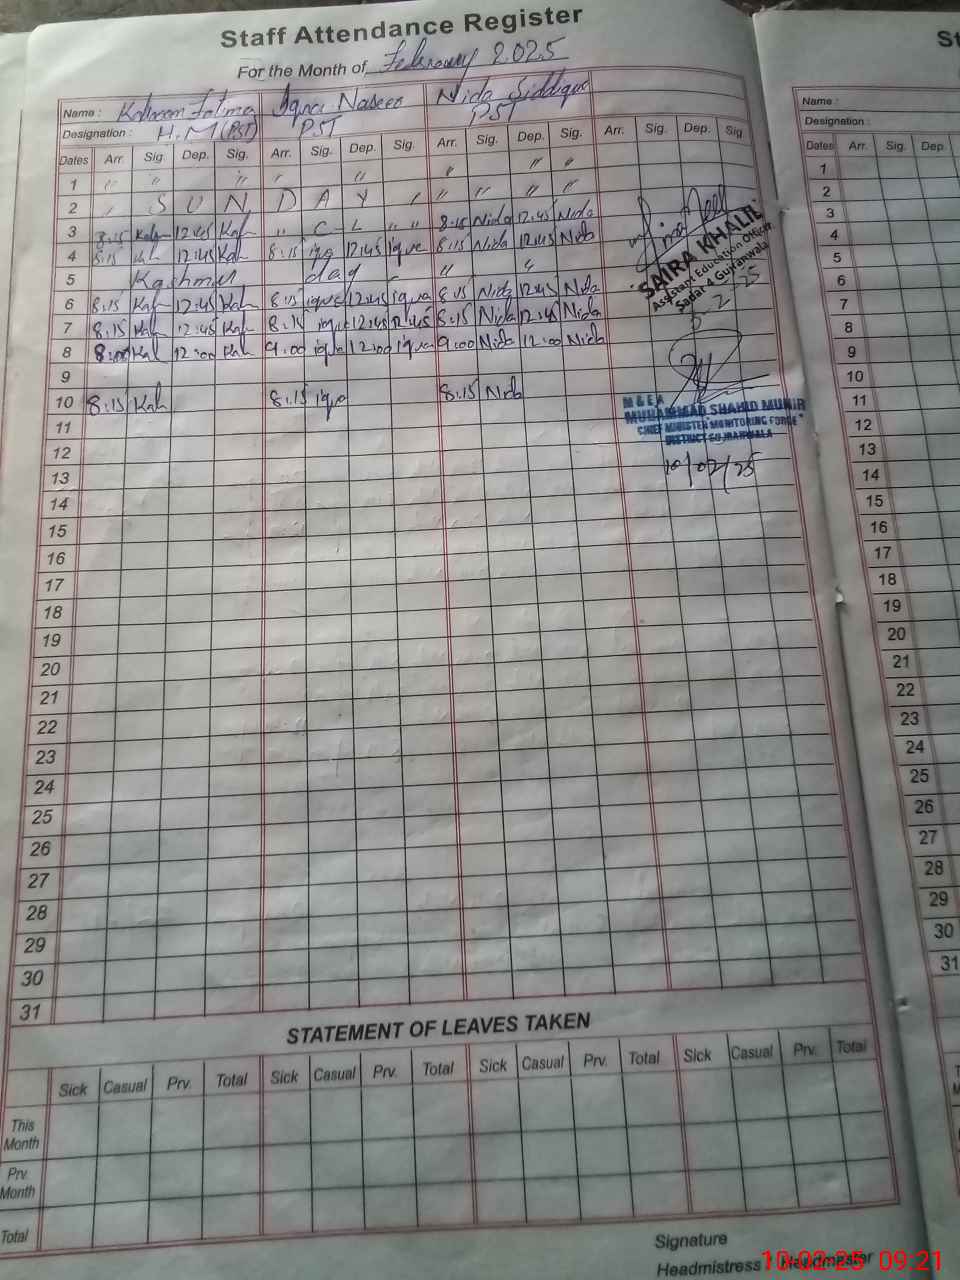 Staff Attendance Register
For the Month of February 2025
Name : Kalsoom Fatima Iqra Naseer Nida Siddique
Designation : H.M (PST) PST PST
Dates Arr. Sig. Dep. Sig. Arr. Sig. Dep. Sig. Arr. Sig. Dep. Sig. Arr. Sig. Dep. Sig
1 " " " " " " " "
2 " S U N D A Y " " " " "
3 8:15 Kal 12:45 Kal " C - L " " 8:15 Nida 12:45 Nida
4 8:15 Kal 12:45 Kal 8:15 iqra 12:45 iqra 8:15 Nida 12:45 Nida
5 Kashmir day " "
6 8:15 Kal 12:45 Kal 8:15 iqra 12:45 iqra 8:15 Nida 12:45 Nida
7 8:15 Kal 12:45 Kal 8:15 iqra 12:45 12:45 8:15 Nida 12:45 Nida
8 8:00 Kal 12:00 Kal 9:00 iqra 12:00 iqra 9:00 Nida 12:00 Nida
9
10 8:15 Kal 8:15 iqra 8:15 Nida
11
12
13
14
15
16
17
18
19
20
21
22
23
24
25
26
27
28
29
30
31
SAIRA KHALIL
Assistant Education Officer
Sadar 4 Gujranwala
2/25
M & E A
MUHAMMAD SHAHID MUNIR
CHIEF MINISTER "MONITORING FORCE"
DISTRICT GUJRANWALA
10/02/25
STATEMENT OF LEAVES TAKEN
Sick Casual Prv. Total Sick Casual Prv. Total Sick Casual Prv. Total Sick Casual Prv. Total
This Month
Prv. Month
Total
Signature
Headmistress / Headmaster
St
Name :
Designation :
Dates Arr. Sig. Dep.
1
2
3
4
5
6
7
8
9
10
11
12
13
14
15
16
17
18
19
20
21
22
23
24
25
26
27
28
29
30
31
10-02-25 09:21